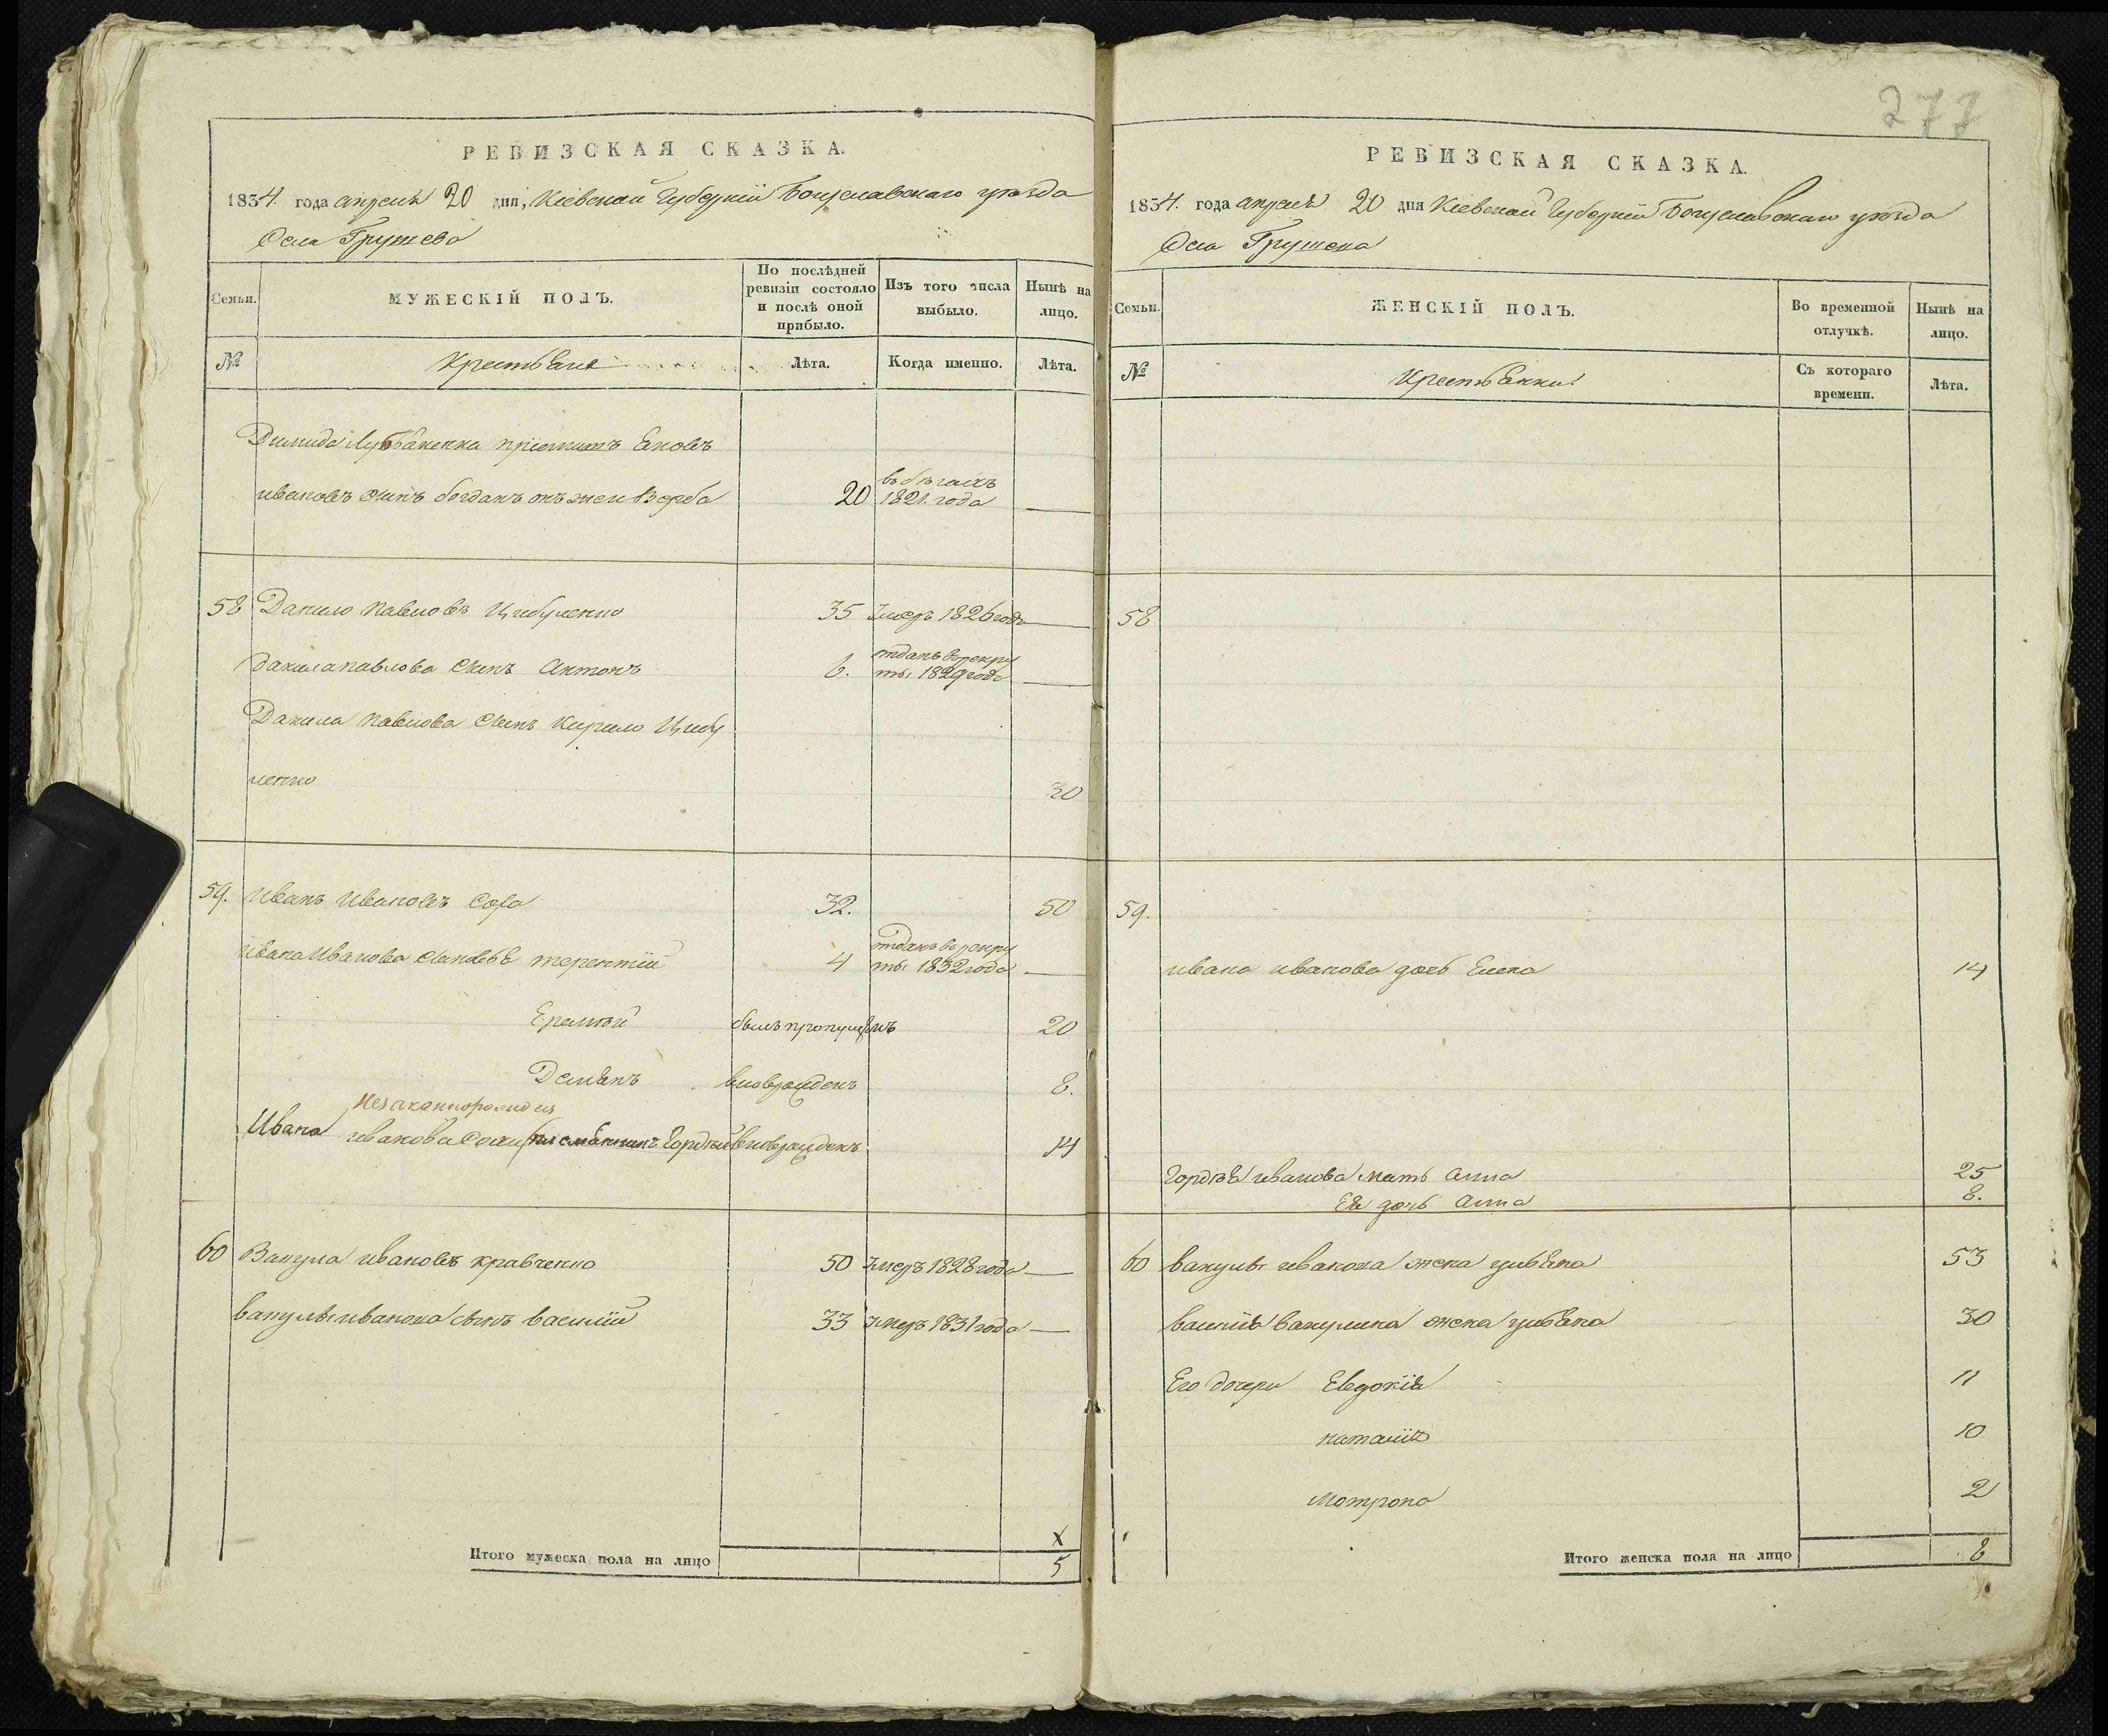 277
РЕВИЗСКАЯ СКАЗКА.
1834. года апреля 20 дня, Кіевской Губерніи Богуславскаго уѣзда
Села Грушева
Семьи.
МУЖЕСКІЙ ПОЛЪ.
По послѣдней ревизіи состояло и послѣ оной прибыло.
Изъ того числа выбыло.
Нынѣ на лицо.
№
Крестьяне
Лѣта.
Когда именно.
Лѣта.
Димида приемышъ Яковъ
ивановъ сынъ богданъ онъ же и Верба 20 въ бегахъ 1821. года —
58 Данило павловъ Цибуленко 35 Умеръ 1826 года —
данила павлова сынъ Антонъ 6. отданъ в рекруты 1829 года —
Данила павлова сынъ Кирило Цибу
ленко 30
59. Иванъ Ивановъ Сова 32. 50
Ивана Иванова сыновья терентій 4 отданъ въ рекруты 1832 года —
Еремѣй былъ пропущенъ 20
Демянъ вновьрожденъ 8.
Незаконнорожден
Ивана иванова Совы Гордѣй вновьрожденъ 14
60 Вакула ивановъ кравченко 50 Умеръ 1828 года —
вакулы иванова сынъ василій 33 Умеръ 1831 года —
Х
Итого мужеска пола на лицо 5
РЕВИЗСКАЯ СКАЗКА.
1834. года апреля 20 дня Кіевской Губерніи Богуславскаго уѣзда
Села Грушева
Семьи.
ЖЕНСКІЙ ПОЛЪ.
Во временной отлучкѣ.
Нынѣ на лицо.
№
Крестьянки
Съ котораго времени.
Лѣта.
58
59.
ивана иванова дочь Елена 14
Гордѣя иванова мать Анна 25
Ея дочь Анна 8.
60 вакулы иванова жена ульяна 53
василія вакулина жена ульяна 30
Его дочери Евдокія 11
наталія 10
Мотрона 2
Итого женска пола на лицо 8